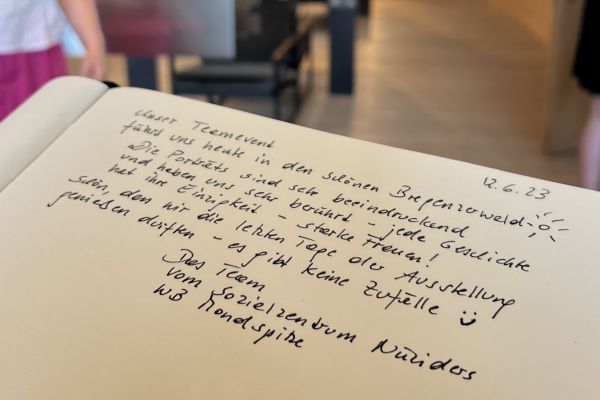 12.6.23
Unser Teamevent
führt uns heute in den schönen Bregenzerwald
Die Porträts sind sehr beeindruckend
und haben uns sehr berührt - jede Geschichte
hat ihre Einzigkeit - starke Frauen!
Schön, den wir die letzten Tage der Ausstellung
genießen durften - es gibt keine Zufälle
Das Team
vom Sozialzentrum Nüziders
WB Mondspitze